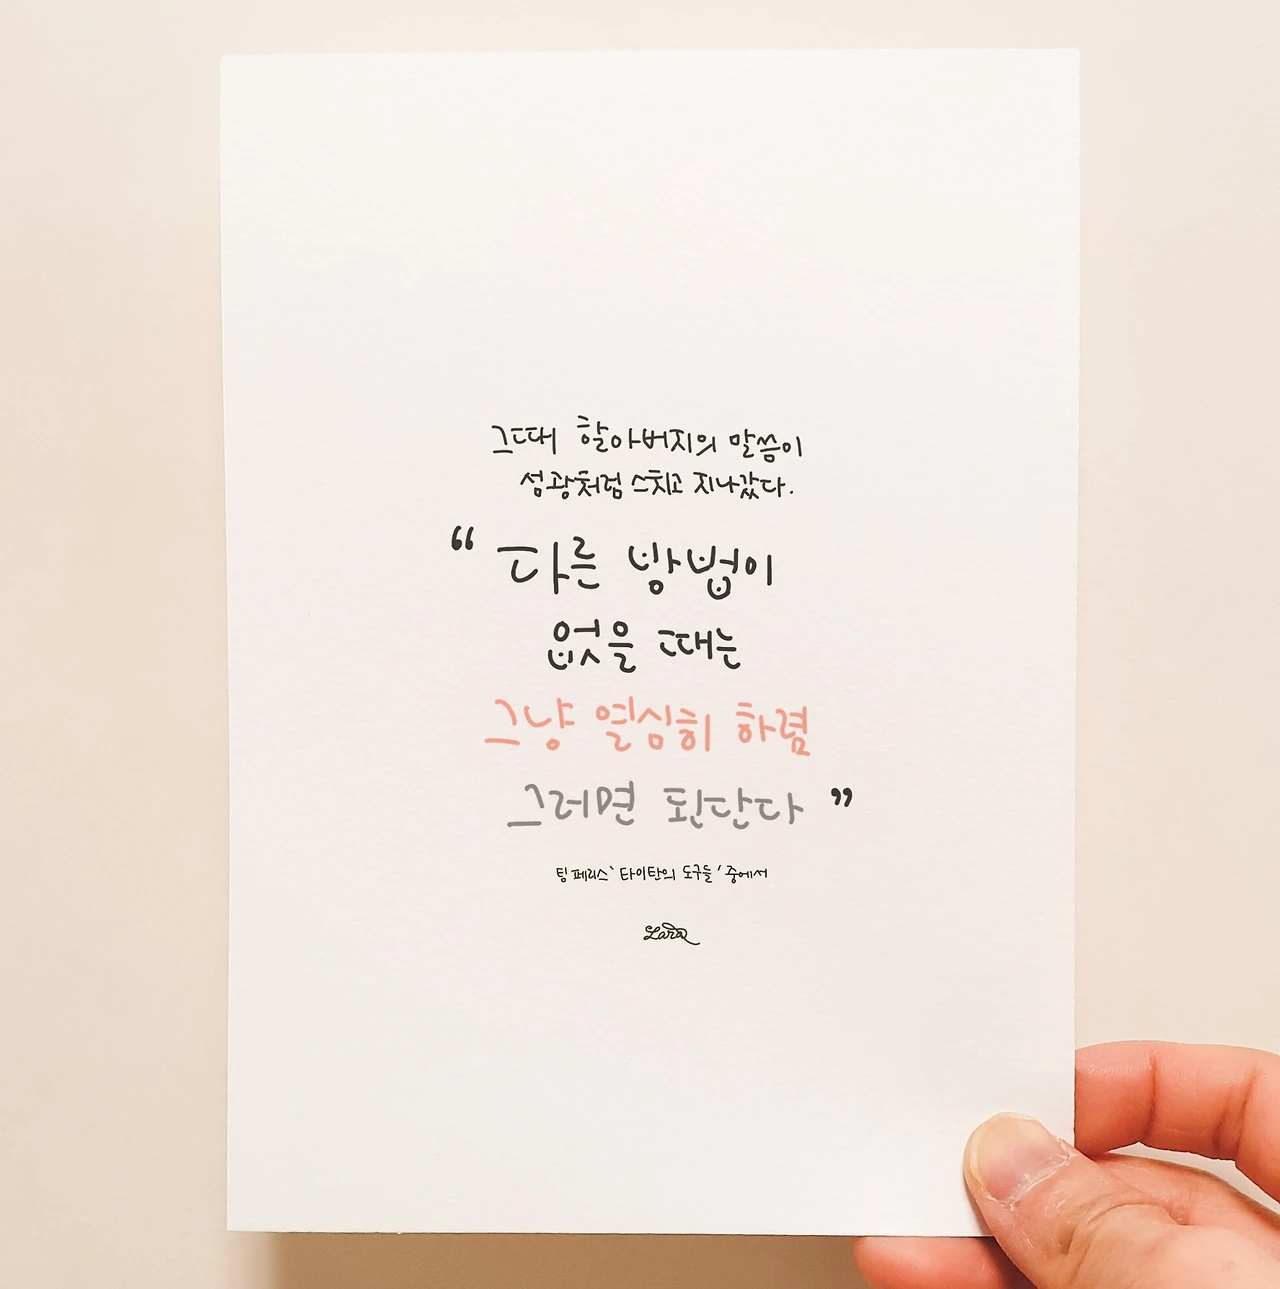 그때 할아버지의 말씀이
섬광처럼 스치고 지나갔다.
“ 다른 방법이
없을 때는
그냥 열심히 하렴
그러면 된단다 ”
팀 페리스 ‘타이탄의 도구들’ 중에서
Lara